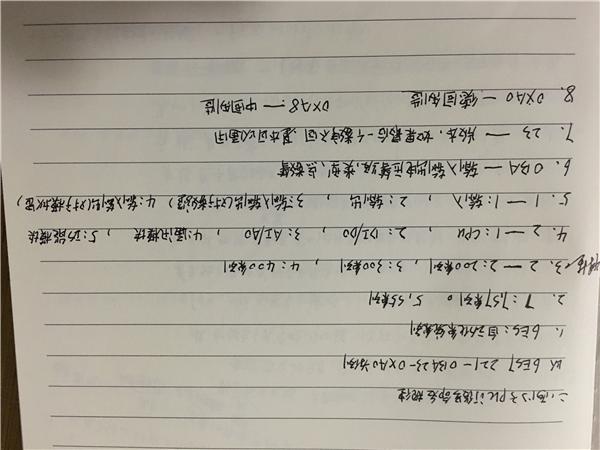 二.西门子PLC订货号命名规律
以 6ES7 221-0BA23-0XA0为例
1. 6ES:自动化系统系列
2. 7:S7系列 5:S5系列
3. 2 — 2:200系列, 3:300系列, 4:400系列
4. 2 — 1:CPU, 2:DI/DO, 3:AI/AO, 4:通讯模块, 5:功能模块
5. 1 — 1:输入, 2:输出, 3:输入输出(对于数字量) 4:输入输出(对于模拟量)
6. 0BA — 输入输出电压等级,类型,点数等
7. 23 — 版本,如果最后一个数字不同,基本可以通用
8. 0XA0 — 德国制造 0XA8 — 中国制造